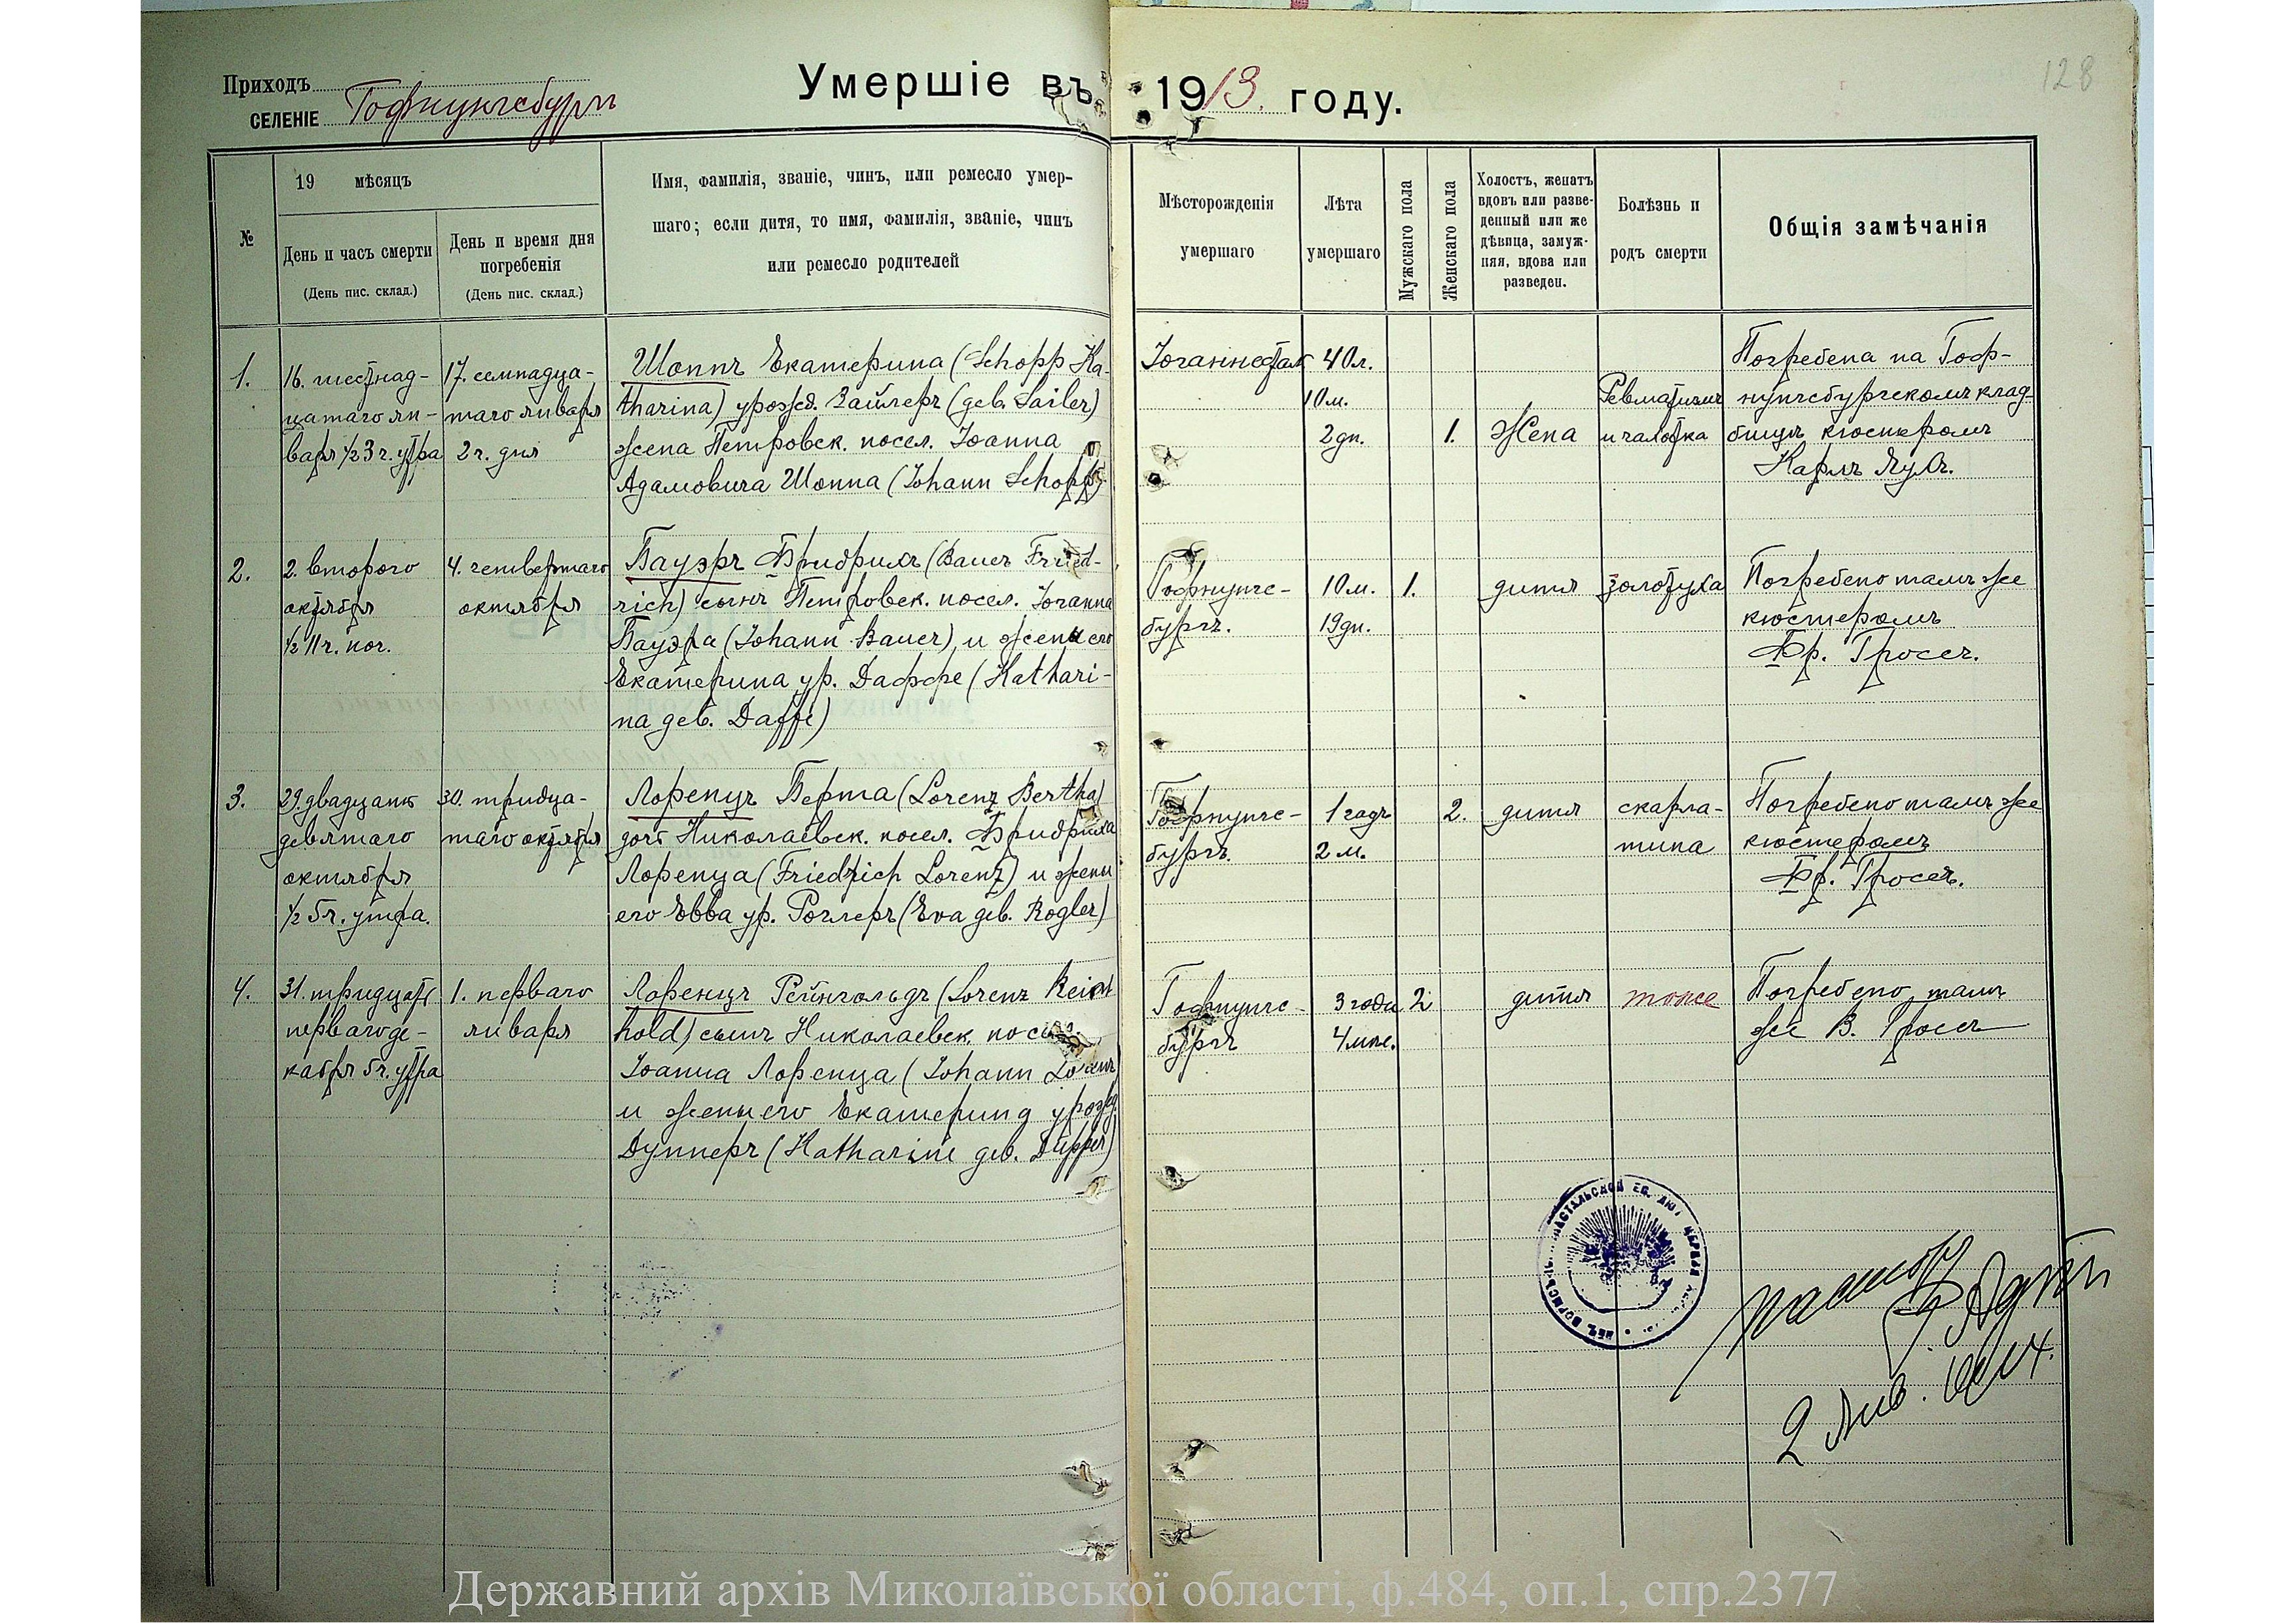 Приходъ
СЕЛЕНІЕ Гофнунгсбургъ
Умершіе въ 1913. году.
128
№
19 мѣсяцъ
День и часъ смерти
(День пис. склад.)
День и время дня
погребенія
(День пис. склад.)
Имя, фамилія, званіе, чинъ, или ремесло умер-
шаго; если дитя, то имя, фамилія, званіе, чинъ
или ремесло родителей
Мѣсторожденія
умершаго
Лѣта
умершаго
Мужскаго пола
Женскаго пола
Холостъ, женатъ
вдовъ или разве-
денный или же
дѣвица, замуж-
няя, вдова или
разведен.
Болѣзнь и
родъ смерти
Общія замѣчанія
1.
16. шестнад-
цатаго ян-
варя ½ 3 ч. утра
17. семнадца-
таго января
2 ч. дня
Шоппъ Екатерина (Schopp Ka-
tharina) урожд. Зайлеръ (geb. Sailer)
жена Петровск. посел. Іоанна
Адамовича Шоппа (Johann Schopp)
Іоганнесталь
40 л.
10 м.
2 дн.
1.
Жена
Ревматизмъ
и чахотка
Погребена на Гоф-
нунгсбургскомъ клад-
бищѣ кюстеромъ
Карлъ
2.
2. второго
октября
½ 11 ч. ноч.
4. четвертаго
октября
Бауэръ Фридрихъ (Bauer Fried-
rich) сынъ Петровск. посел. Іоганна
Бауэра (Johann Bauer) и жены его
Екатерина ур. Даффе (Kathari-
na geb. Daffe)
Гофнунгс-
бургъ.
10 м.
19 дн.
1.
дитя
золотуха
Погребено тамъ же
кюстеромъ
Фр. Гроссъ.
3.
29. двадцать
девятаго
октября
½ 5 ч. утра.
30. тридца-
таго октября
Лоренцъ Берта (Lorenz Bertha)
дочь Николаевск. посел. Фридриха
Лоренца (Friedrich Lorenz) и жены
его Евва ур. Роглеръ (Eva geb. Rogler)
Гофнунгс-
бургъ.
1 годъ
2 м.
2.
дитя
скарла-
тина
Погребено тамъ же
кюстеромъ
Фр. Гроссъ.
4.
31. тридцать
перваго де-
кабря 5 ч. утра
1. перваго
января
Лоренцъ Рейнгольдъ (Lorenz Rein-
hold) сынъ Николаевск. посел.
Іоанна Лоренца (Johann Lorenz)
и жены его Екатерина урожд.
Дупперъ (Katharine geb. Düpper)
Гофнунгс-
бургъ
3 года
2
дитя
тоже
Погребено тамъ
же В. Гроссъ
пасторъ
2 Янв. 1914.
Державний архів Миколаївської області, ф.484, оп.1, спр.2377